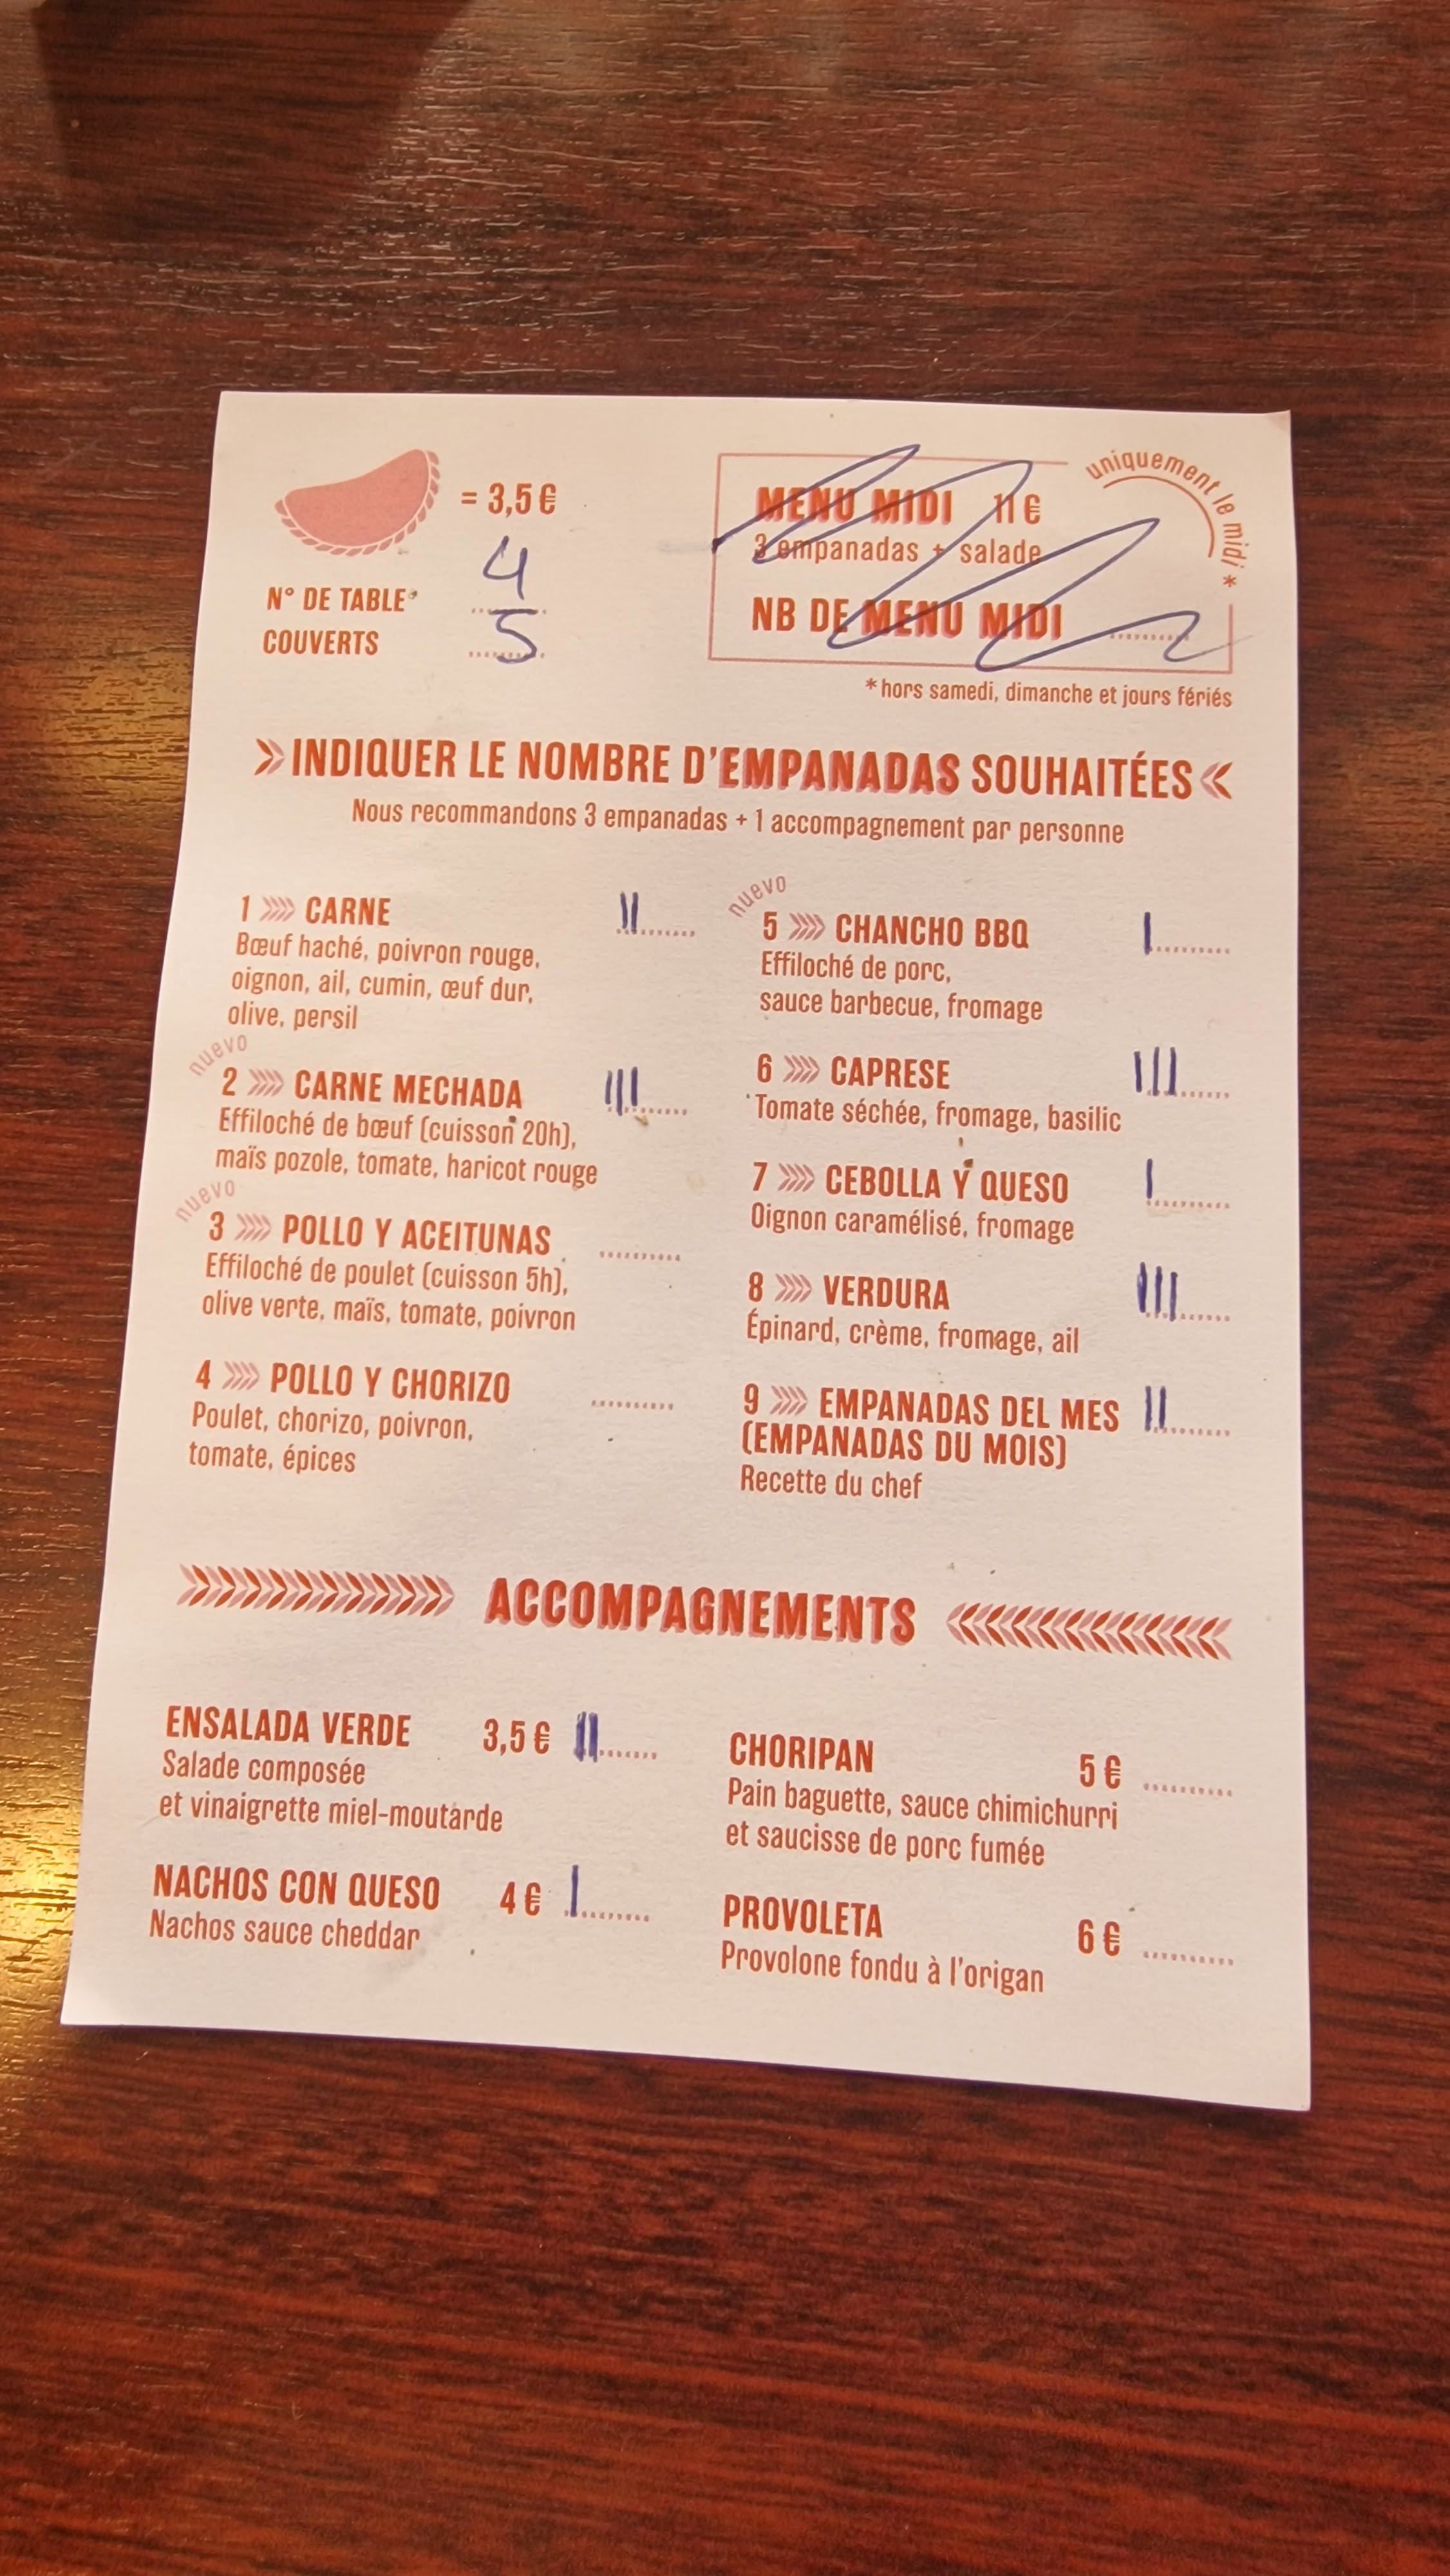 = 3,5 €
N° DE TABLE 4
COUVERTS 5
MENU MIDI 11 €
3 empanadas + salade
NB DE MENU MIDI
uniquement le midi *
* hors samedi, dimanche et jours fériés
INDIQUER LE NOMBRE D'EMPANADAS SOUHAITÉES
Nous recommandons 3 empanadas + 1 accompagnement par personne
1 CARNE II
Bœuf haché, poivron rouge,
oignon, ail, cumin, œuf dur,
olive, persil
nuevo
2 CARNE MECHADA III
Effiloché de bœuf (cuisson 20h),
maïs pozole, tomate, haricot rouge
nuevo
3 POLLO Y ACEITUNAS
Effiloché de poulet (cuisson 5h),
olive verte, maïs, tomate, poivron
4 POLLO Y CHORIZO
Poulet, chorizo, poivron,
tomate, épices
nuevo
5 CHANCHO BBQ I
Effiloché de porc,
sauce barbecue, fromage
6 CAPRESE III
Tomate séchée, fromage, basilic
7 CEBOLLA Y QUESO I
Oignon caramélisé, fromage
8 VERDURA III
Épinard, crème, fromage, ail
9 EMPANADAS DEL MES II
(EMPANADAS DU MOIS)
Recette du chef
ACCOMPAGNEMENTS
ENSALADA VERDE 3,5 € II
Salade composée
et vinaigrette miel-moutarde
NACHOS CON QUESO 4 € I
Nachos sauce cheddar
CHORIPAN 5 €
Pain baguette, sauce chimichurri
et saucisse de porc fumée
PROVOLETA 6 €
Provolone fondu à l'origan